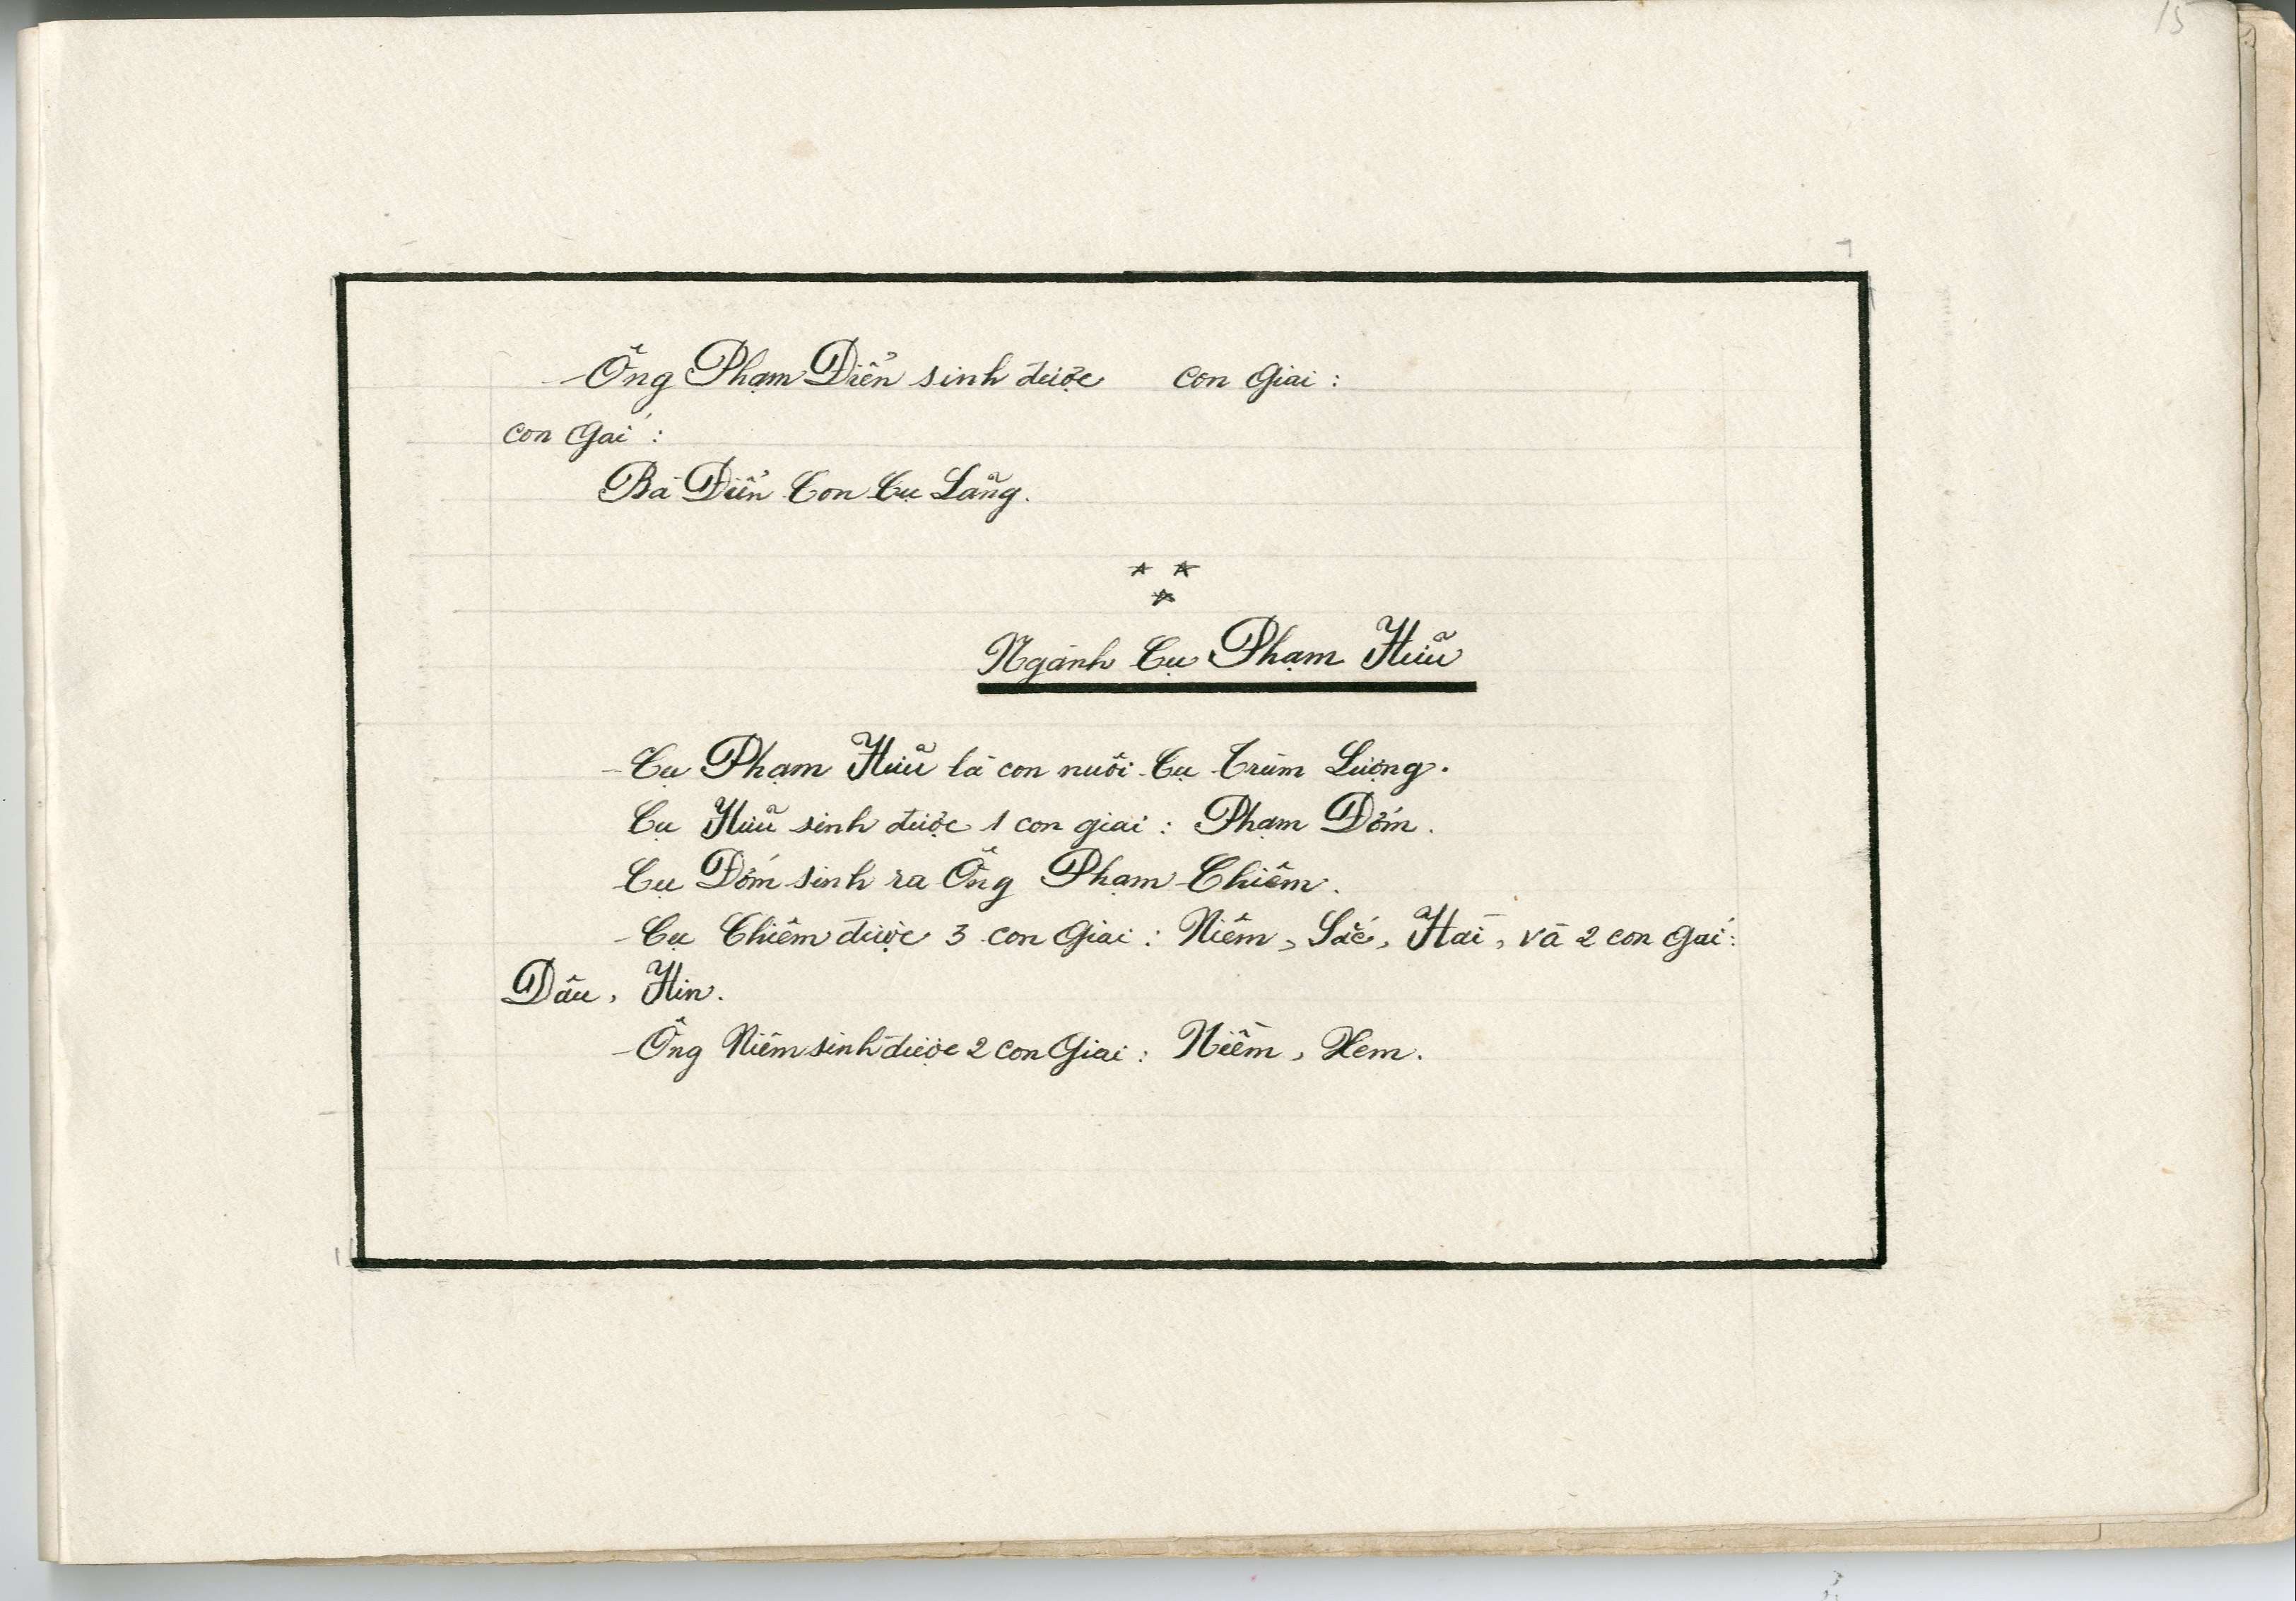 15
- Ông Phạm Điển sinh được con Giai :
con Gái :
Bà Điển Con Cụ Lẵng.
* *
*
Ngành Cụ Phạm Hữu
- Cụ Phạm Hữu là con nuôi Cụ Trùm Lượng.
Cụ Hữu sinh được 1 con giai : Phạm Đốm.
Cụ Đốm sinh ra Ông Phạm Chiêm.
- Cụ Chiêm được 3 con Giai : Niêm, Sắc, Hài, và 2 con Gái :
Dâu, Hin.
- Ông Niêm sinh được 2 con Giai : Niềm, Xem.